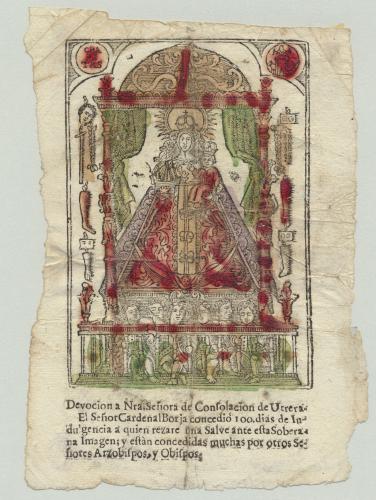 Devocion a Nra. Señora de Consolacion de Utrera.
El Señor Cardenal Borja concediò 100. dias de In-
du'gencia a quien rezare una Salve ante esta Sobera-
na Imagen; y estàn concedidas muchas por otros Se-
ñores Arzobispos, y Obispos.